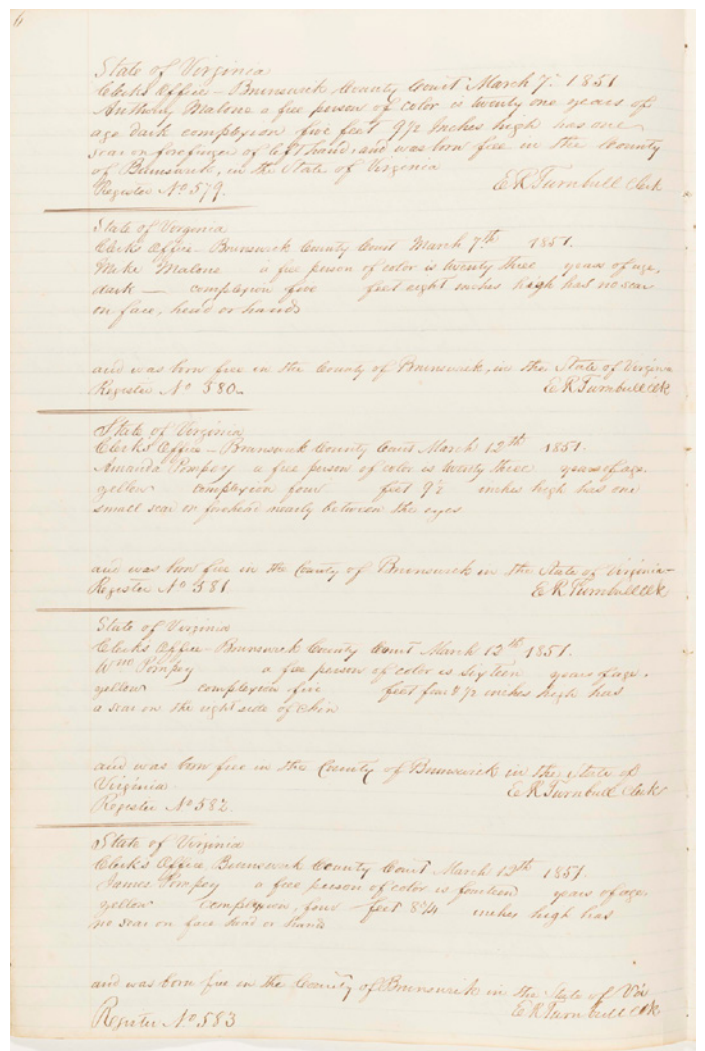 6
State of Virginia
Clerks Office - Brunswick County Court March 7th 1851
Anthony Malone a free person of color is twenty one years of
age dark complexion five feet 9 1/2 Inches high has one
scar on forefinger of left hand, and was born free in the County
of Brunswick, in the State of Virginia
Register No 579. E R Turnbull Clerk
State of Virginia
Clerks Office - Brunswick County Court March 7th 1851.
Mike Malone a free person of color is twenty three years of age,
dark — complexion five feet eight inches high has no scar
on face, head or hands
and was born free in the County of Brunswick, in the State of Virginia
Register No 580 - E R Turnbull Clk
State of Virginia
Clerks Office - Brunswick County Court March 12th 1851.
Amanda Pompey a free person of color is twenty three years of age.
yellow complexion four feet 9 1/2 inches high has one
small scar in forehead nearly between the eyes
and was born free in the County of Brunswick in the State of Virginia -
Register No 581 E R Turnbull Clk
State of Virginia
Clerks Office - Brunswick County Court March 12th 1851.
Wm Pompey a free person of color is Sixteen years of age.
yellow complexion five feet four & 1/2 inches high has
a scar on the right side of Chin
and was born free in the County of Brunswick in the State of
Virginia. E R Turnbull Clerk
Register No 582.
State of Virginia
Clerks Office Brunswick County Court March 12th 1851.
James Pompey a free person of color is fourteen years of age.
yellow complexion, four feet 8 3/4 inches high has
no scar on face head or hands
and was born free in the County of Brunswick in the State of Va
Register No 583 E R Turnbull Clk